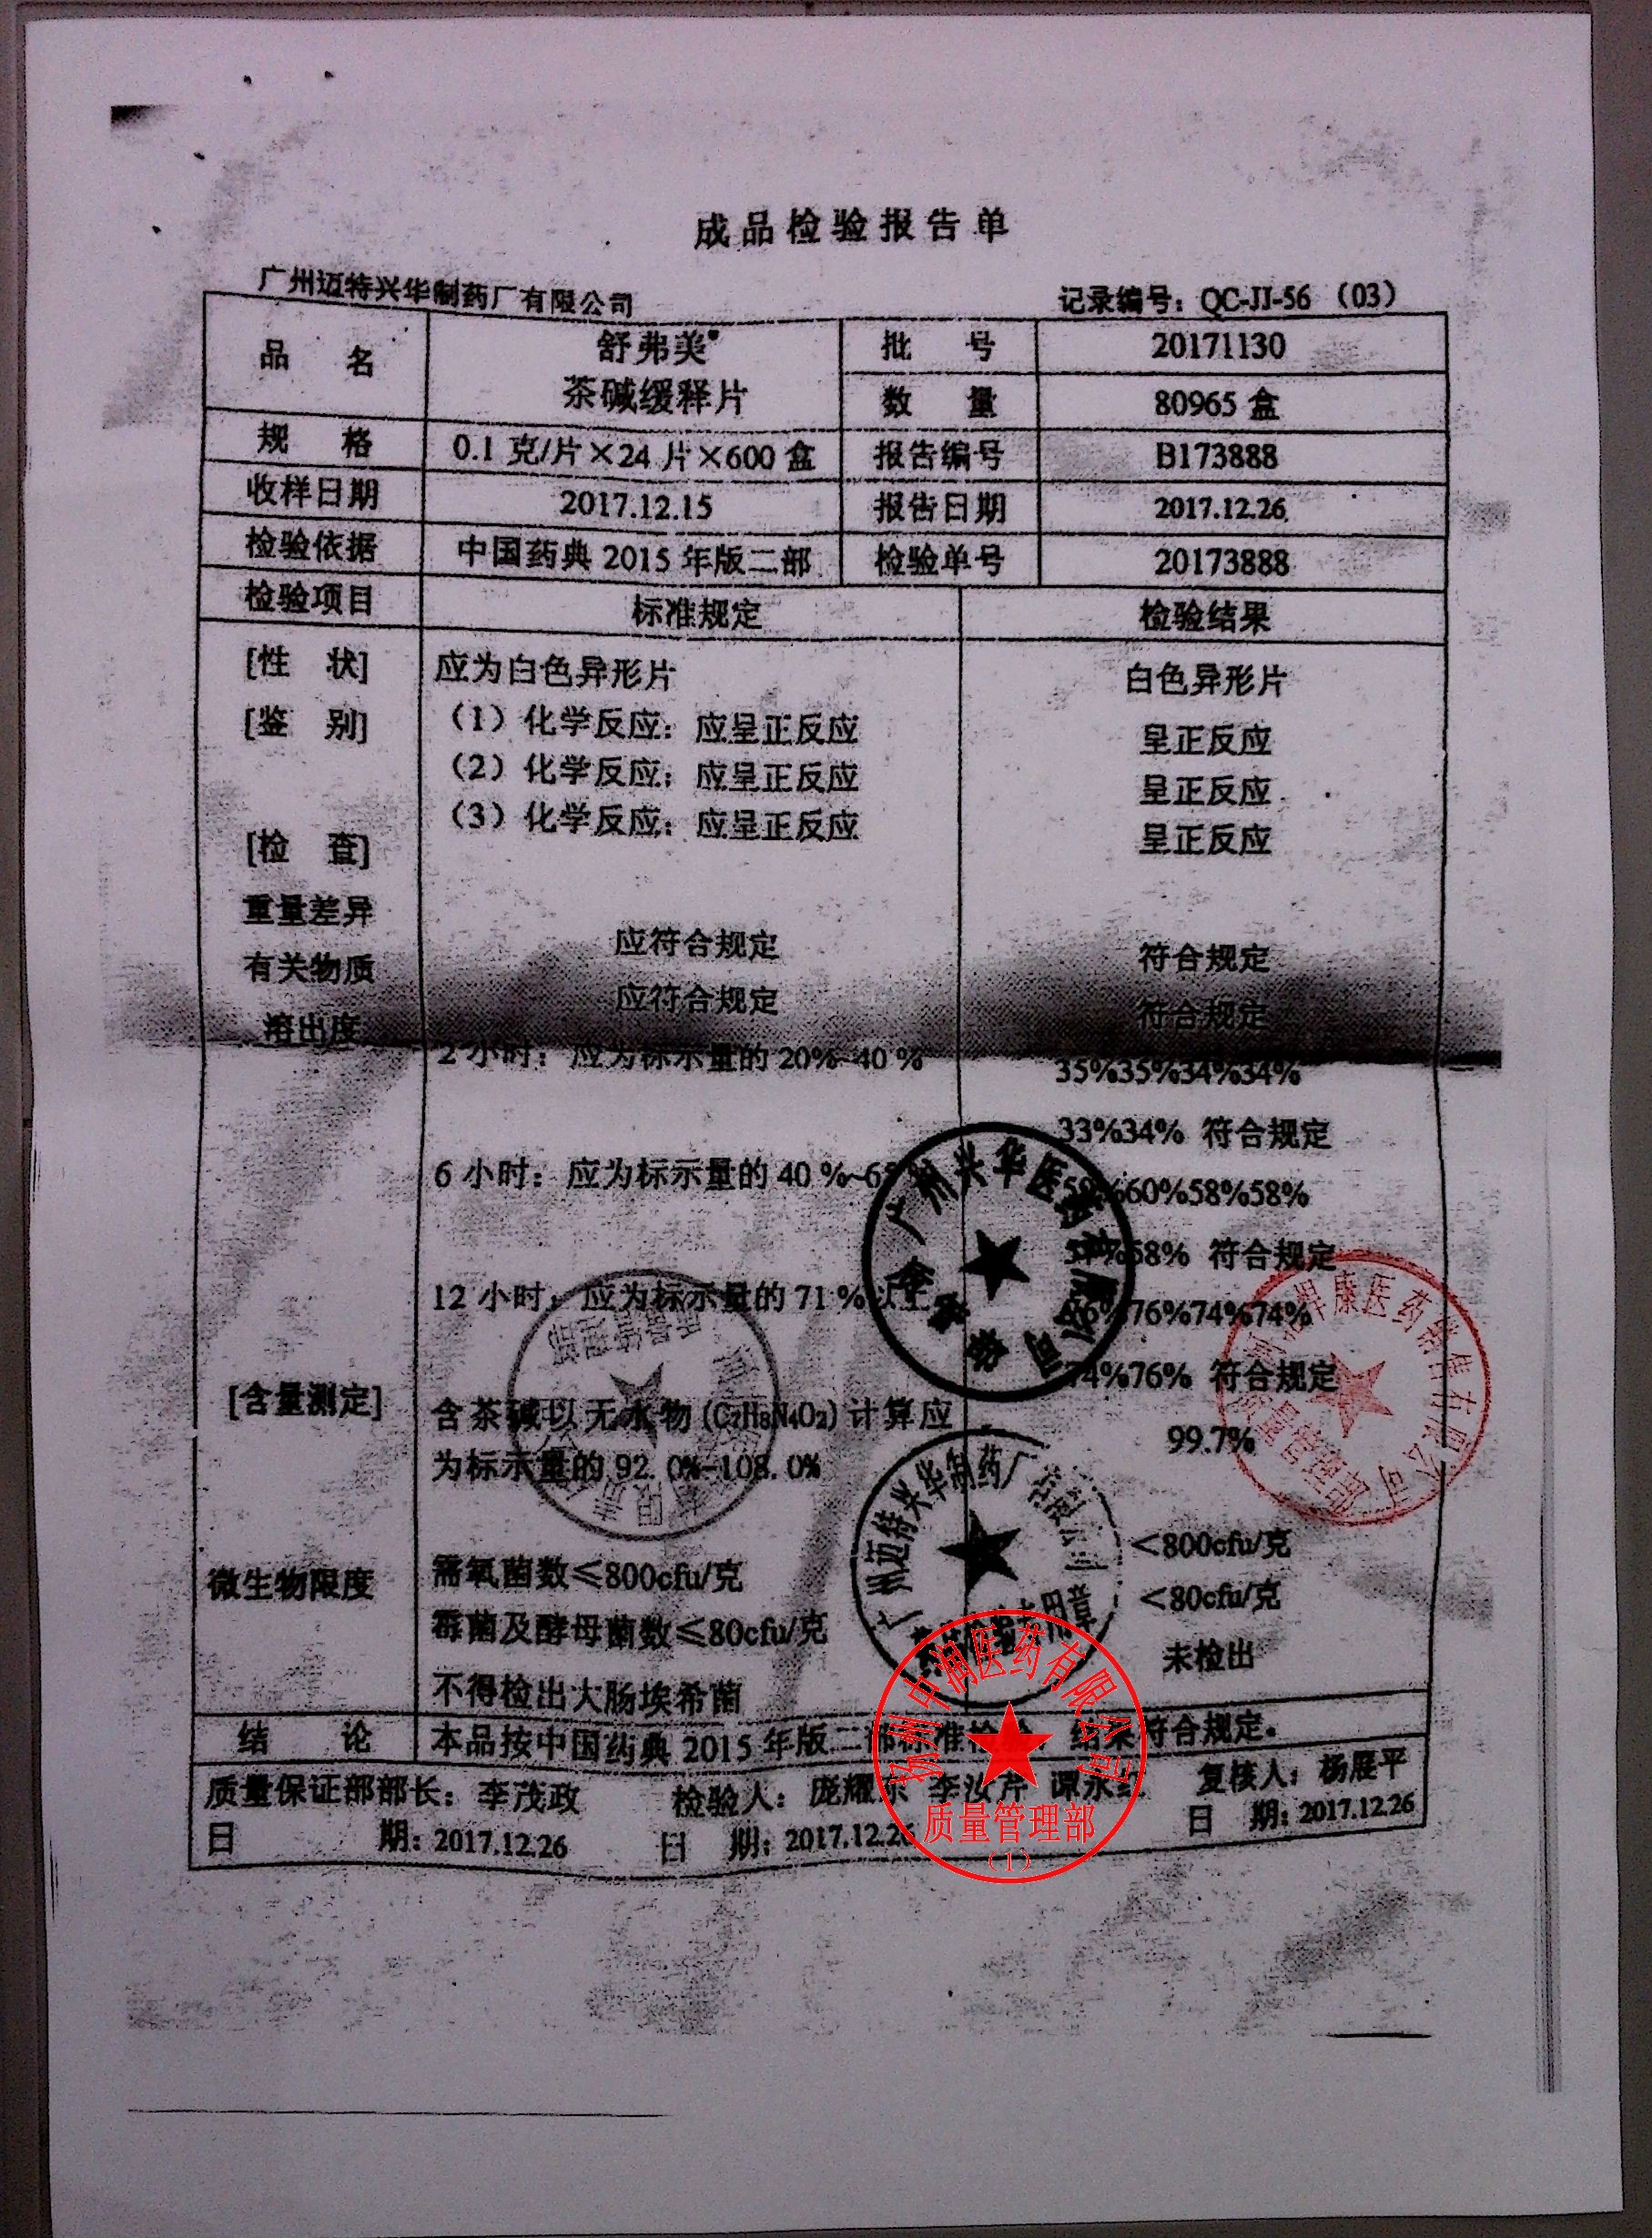 成品检验报告单
广州迈特兴华制药厂有限公司 记录编号：QC-JJ-56（03）
品 名 舒弗美® 茶碱缓释片 批 号 20171130
数 量 80965 盒
规 格 0.1 克/片×24 片×600 盒 报告编号 B173888
收样日期 2017.12.15 报告日期 2017.12.26.
检验依据 中国药典 2015 年版二部 检验单号 20173888
检验项目 标准规定 检验结果
[性 状] 应为白色异形片 白色异形片
[鉴 别] （1）化学反应：应呈正反应 呈正反应
（2）化学反应：应呈正反应 呈正反应
（3）化学反应：应呈正反应 呈正反应
[检 查]
重量差异 应符合规定 符合规定
有关物质 应符合规定 符合规定
溶出度 2 小时：应为标示量的 20%~40 % 35%35%34%34%
33%34% 符合规定
6 小时：应为标示量的 40 %~6 60%58%58%
58% 符合规定
12 小时：应为标示量的 71 % 以上 76%74%74%
74%76% 符合规定
[含量测定] 含茶碱以无水物 (C₇H₈N₄O₂) 计算应
为标示量的 92. 0%-108. 0% 99.7%
微生物限度 需氧菌数≤800cfu/克 <800cfu/克
霉菌及酵母菌数≤80cfu/克 <80cfu/克
不得检出大肠埃希菌 未检出
结 论 本品按中国药典 2015 年版二部标准检验，结果符合规定。
质量保证部部长：李茂政 检验人：庞耀东 李汝芹 谭永红 复核人：杨展平
日 期：2017.12.26 日 期：2017.12.26 日 期：2017.12.26
广州兴华医药
有限公司
质量管理部
康医药销售有限公司
质量管理部
广州迈特兴华制药厂有限公司
专用章
中润医药有限公司
质量管理部
（1）